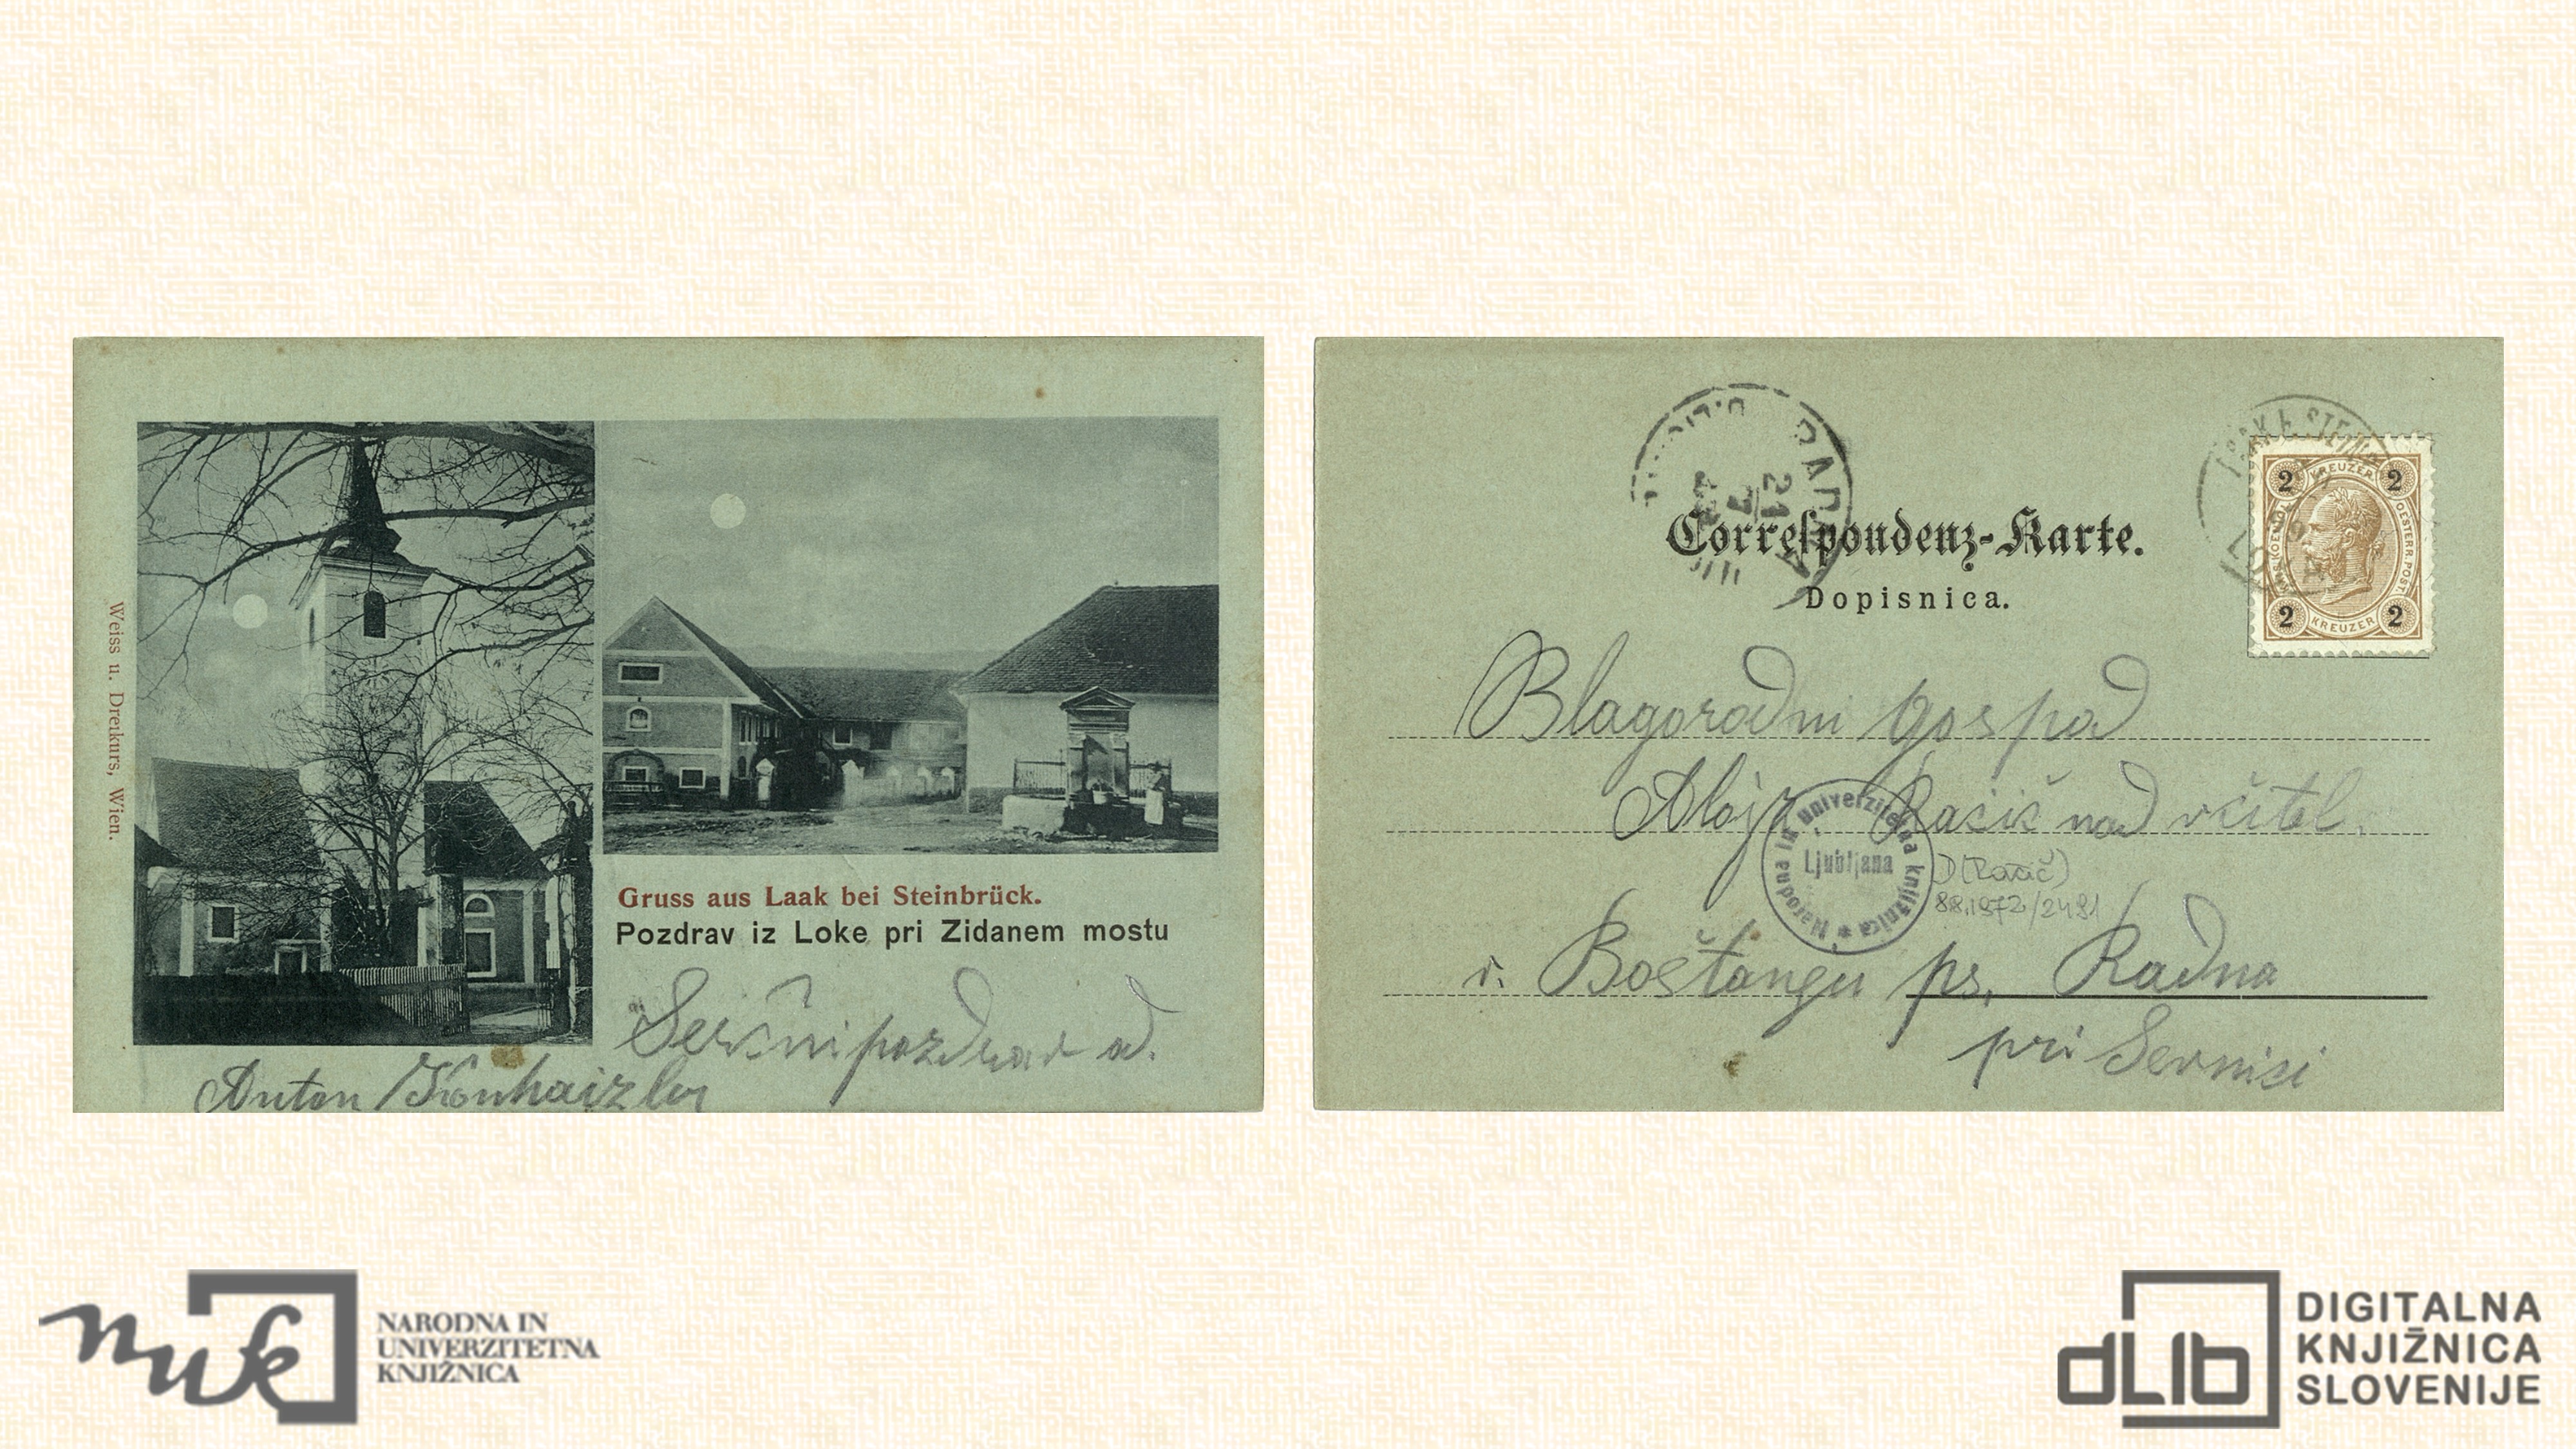 Weiss u. Dreikurs, Wien.
Gruss aus Laak bei Steinbrück.
Pozdrav iz Loke pri Zidanem mostu
Serčni pozdrav od.
Anton
RADNA
21
7
Correspondenz-Karte.
Dopisnica.
LAAK b. STEIN
2 KREUZER 2
OESTERR. POST
2 KREUZER 2
Blagorodni gospod
Alojz Račič nad včitel.
Narodna in univerzitetna knjižnica
Ljubljana
D (Račič)
v. Boštangu ps. Radna
pri Sevnici
nuk
NARODNA IN
UNIVERZITETNA
KNJIŽNICA
dLib
DIGITALNA
KNJIŽNICA
SLOVENIJE